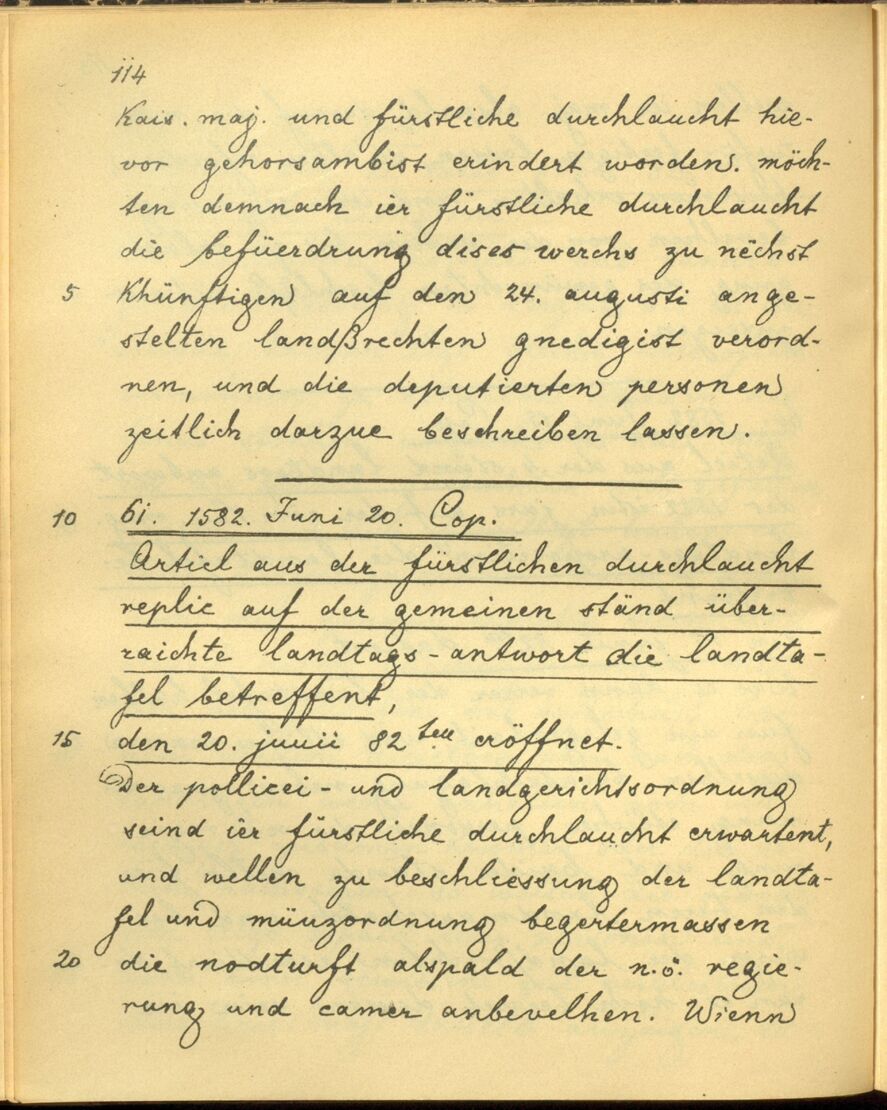 114
Kais. maj. und fürstliche durchlaucht hie-
vor gehorsambist erindert worden. möch-
ten demnach ier fürstliche durchlaucht
die befüerdrung dises werchs zu nëchst
5 Khünftigen auf den 24. augusti ange-
stelten landßrechten gnedigist verord-
nen, und die deputierten personen
zeitlich darzue beschreiben lassen.
10 61. 1582. Juni 20. Cop.
Articl aus der fürstlichen durchlaucht
replic auf der gemeinen ständ über-
raichte landtags-antwort die landta-
fel betreffent,
15 den 20. junii 82 ten eröffnet.
Der pollicei- und landgerichtsordnung
seind ier fürstliche durchlaucht erwartent,
und wellen zu beschliessung der landta-
fel und münzordnung begertermassen
20 die nodturft alspald der n.ö. regie-
rung und camer anbevelhen. Wienn